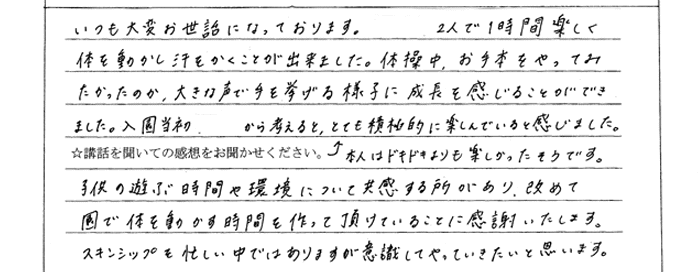 いつも大変お世話になっております。 2人で1時間楽しく
体を動かし汗をかくことが出来ました。体操中、お手本をやってみ
たかったのか、大きな声で手を挙げる様子に成長を感じることができ
ました。入園当初、 から考えると、とても積極的に楽しんでいると感じました。
☆講話を聞いての感想をお聞かせください。 本人はドキドキよりも楽しかったそうです。
子供の遊ぶ時間や環境について共感する所があり、改めて
園で体を動かす時間を作って頂けていることに感謝いたします。
スキンシップも忙しい中ではありますが意識してやっていきたいと思います。